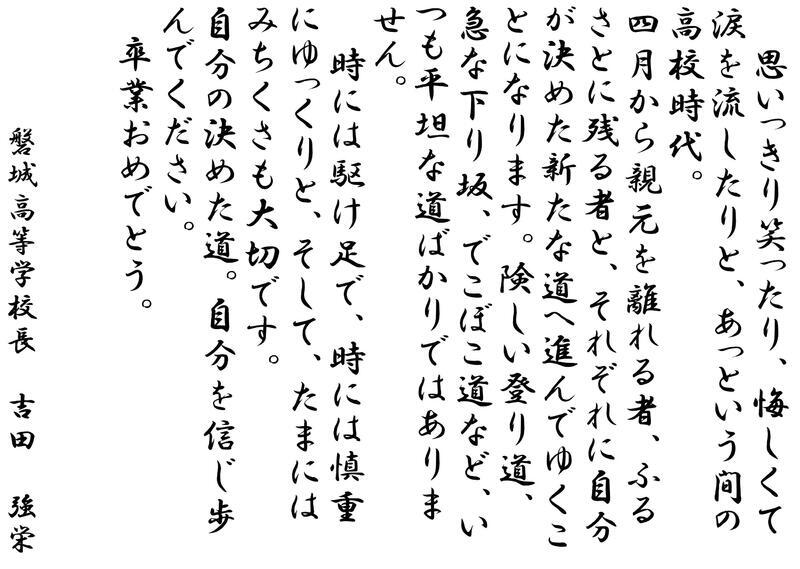 思いっきり笑ったり、悔しくて
涙を流したりと、あっという間の
高校時代。
四月から親元を離れる者、ふる
さとに残る者と、それぞれに自分
が決めた新たな道へ進んでゆくこ
とになります。険しい登り道、
急な下り坂、でこぼこ道など、い
つも平坦な道ばかりではありま
せん。
時には駆け足で、時には慎重
にゆっくりと、そして、たまには
みちくさも大切です。
自分の決めた道。自分を信じ歩
んでください。
卒業おめでとう。
磐城高等学校長 吉田 強栄